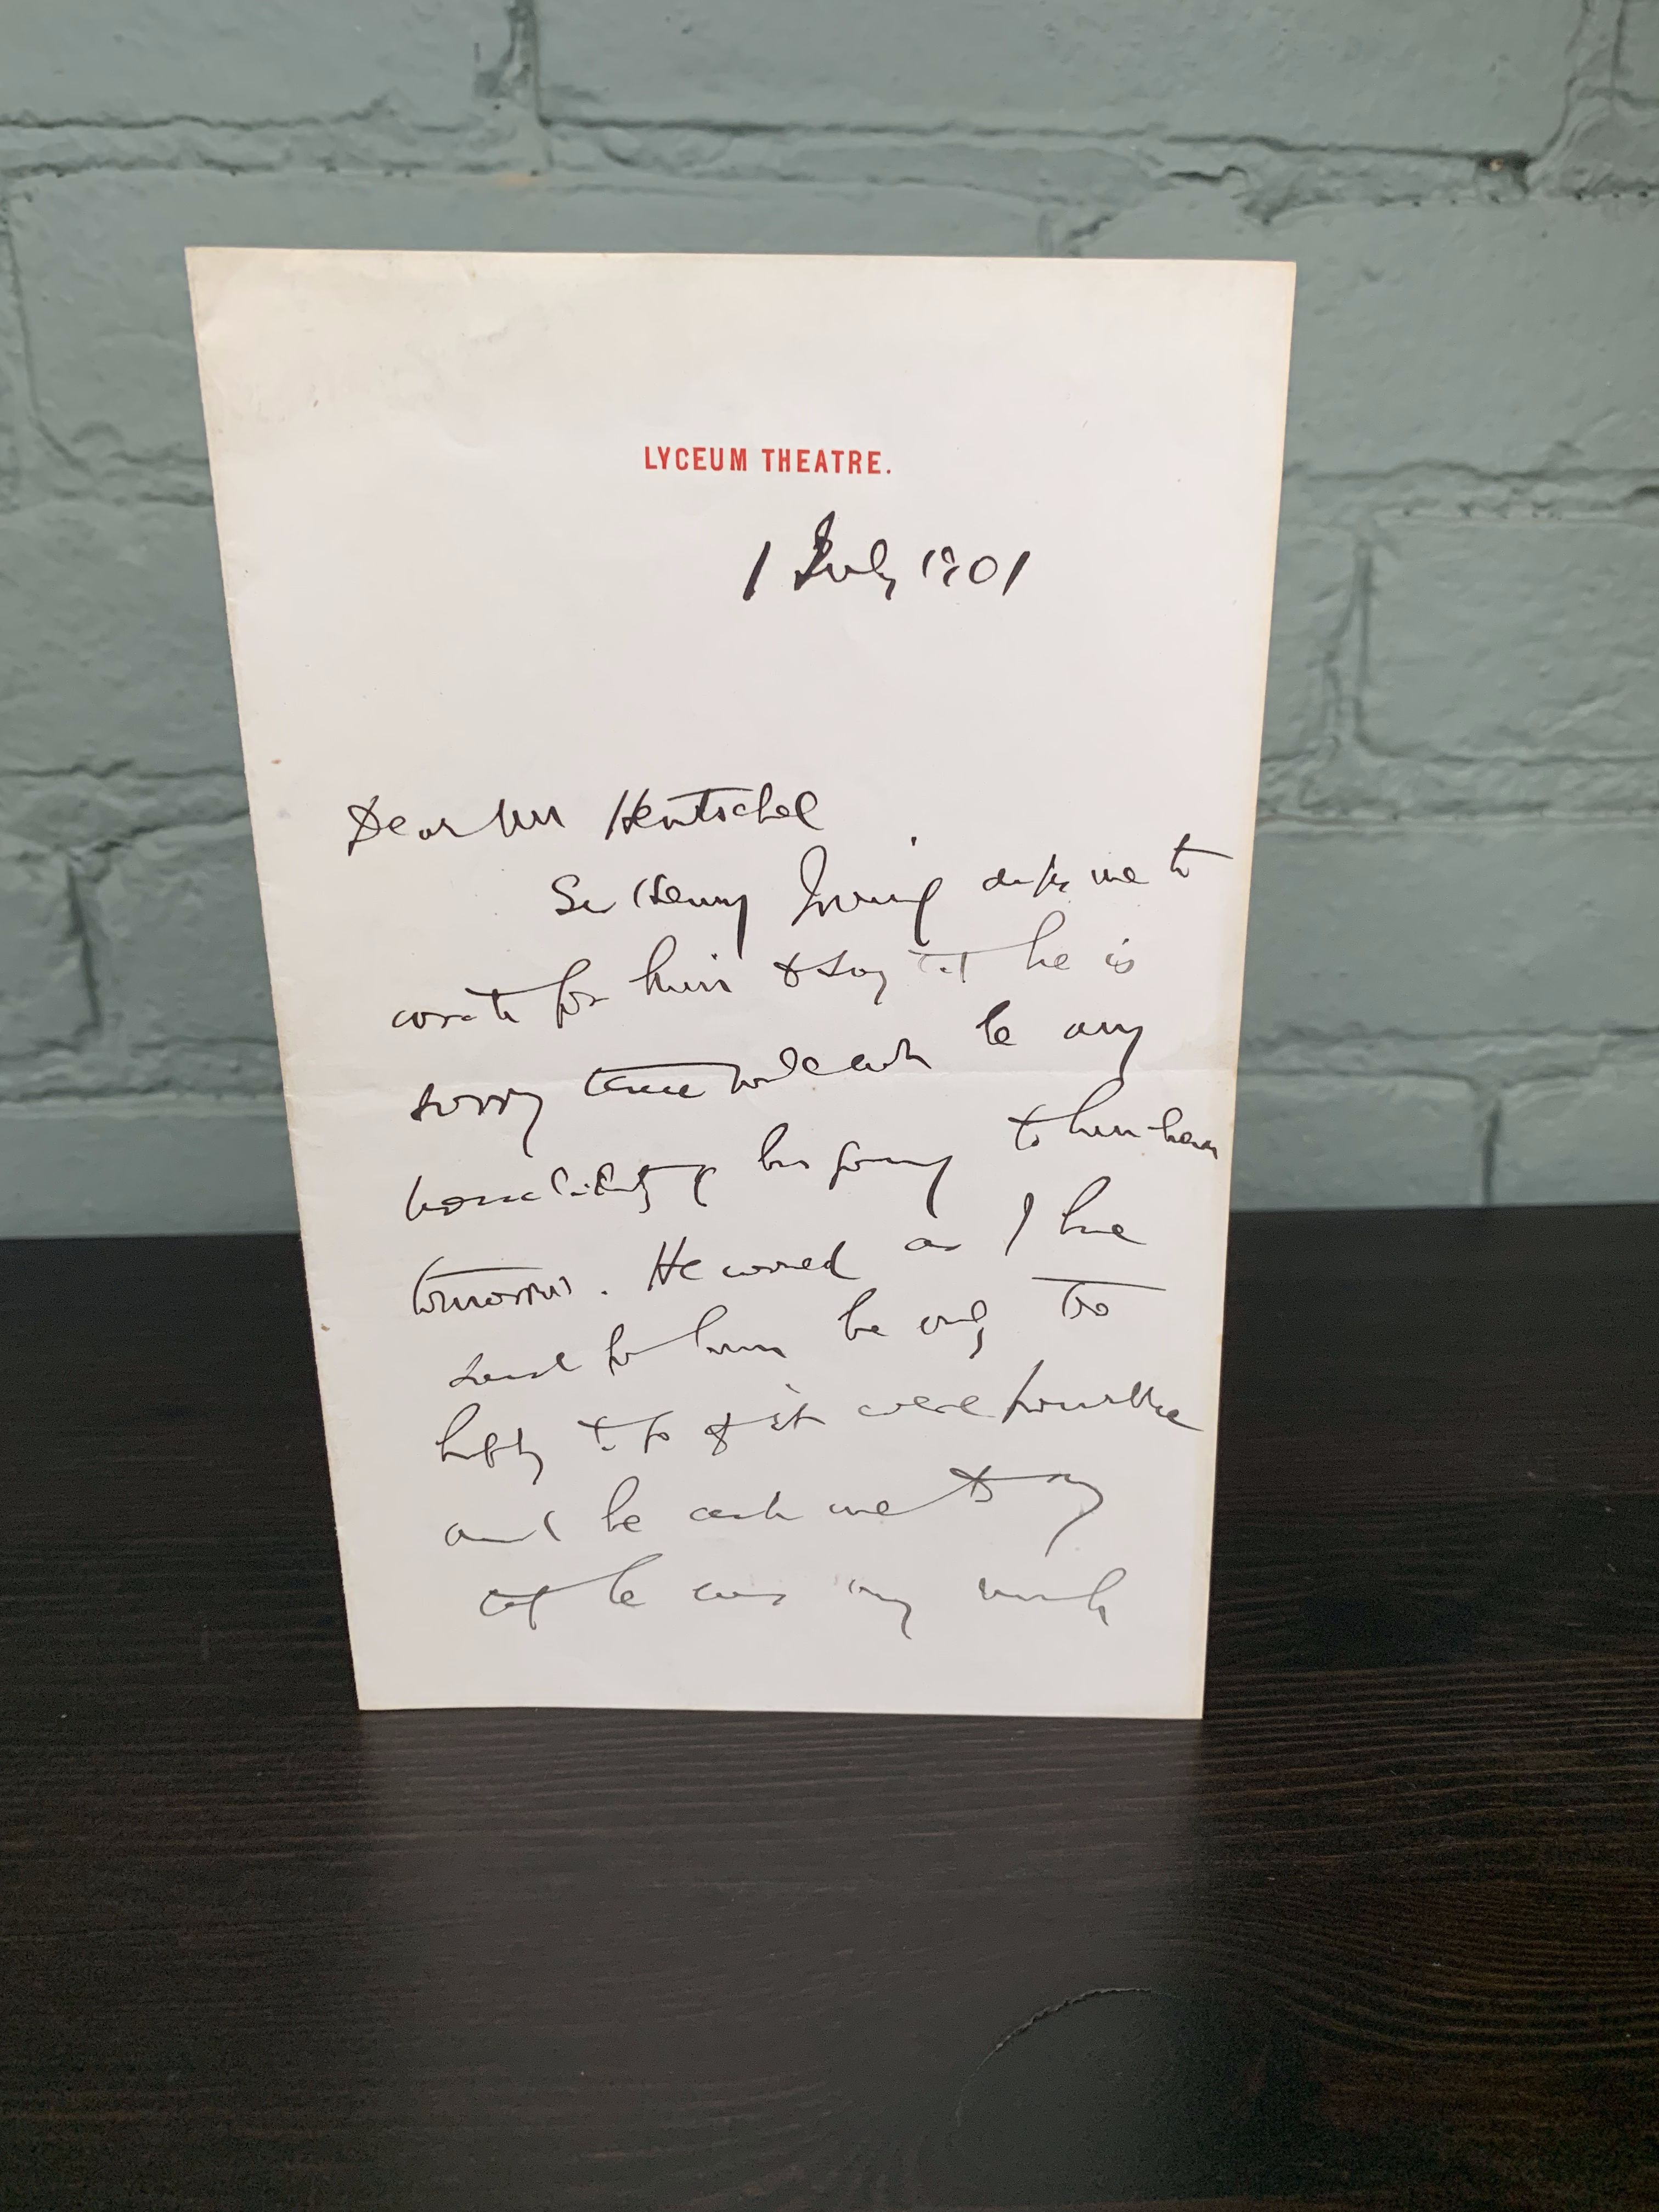 LYCEUM THEATRE.
1 July 1901
Dear Mr Hentschel
Sir Henry Irving asks me to
write for him & say that he is
sorry there will not be any
possibility of his going to
tomorrow. He would as I have
said for him be only too
happy to go if it were possible
and he asks me to say
he very much